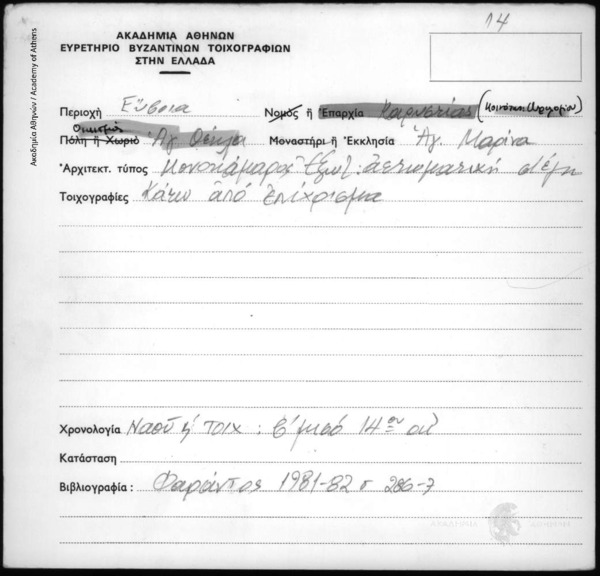 14
ΑΚΑΔΗΜΙΑ ΑΘΗΝΩΝ
ΕΥΡΕΤΗΡΙΟ ΒΥΖΑΝΤΙΝΩΝ ΤΟΙΧΟΓΡΑΦΙΩΝ
ΣΤΗΝ ΕΛΛΑΔΑ
Ακαδημία Αθηνών / Academy of Athens
Περιοχή Εὔβοια Νομός ἤ Ἐπαρχία Καρυστίας
Οικισμός
Πόλη ἤ Χωριό Ἁγ. Θέκλα Μοναστήρι ἤ Ἐκκλησία Ἁγ. Μαρίνα
Ἀρχιτεκτ. τύπος Μονοκάμαρος Ἐξωτ. ἀετωματική στέγη
Τοιχογραφίες Κάτω ἀπό ἐπίχρισμα
Χρονολογία Ναοῦ ἤ τοιχ : β' μισό 14ου αἰ
Κατάσταση
Βιβλιογραφία : Φαράντος 1981-82 σ 286-7
ΑΚΑΔΗΜΙΑ ΑΘΗΝΩΝ